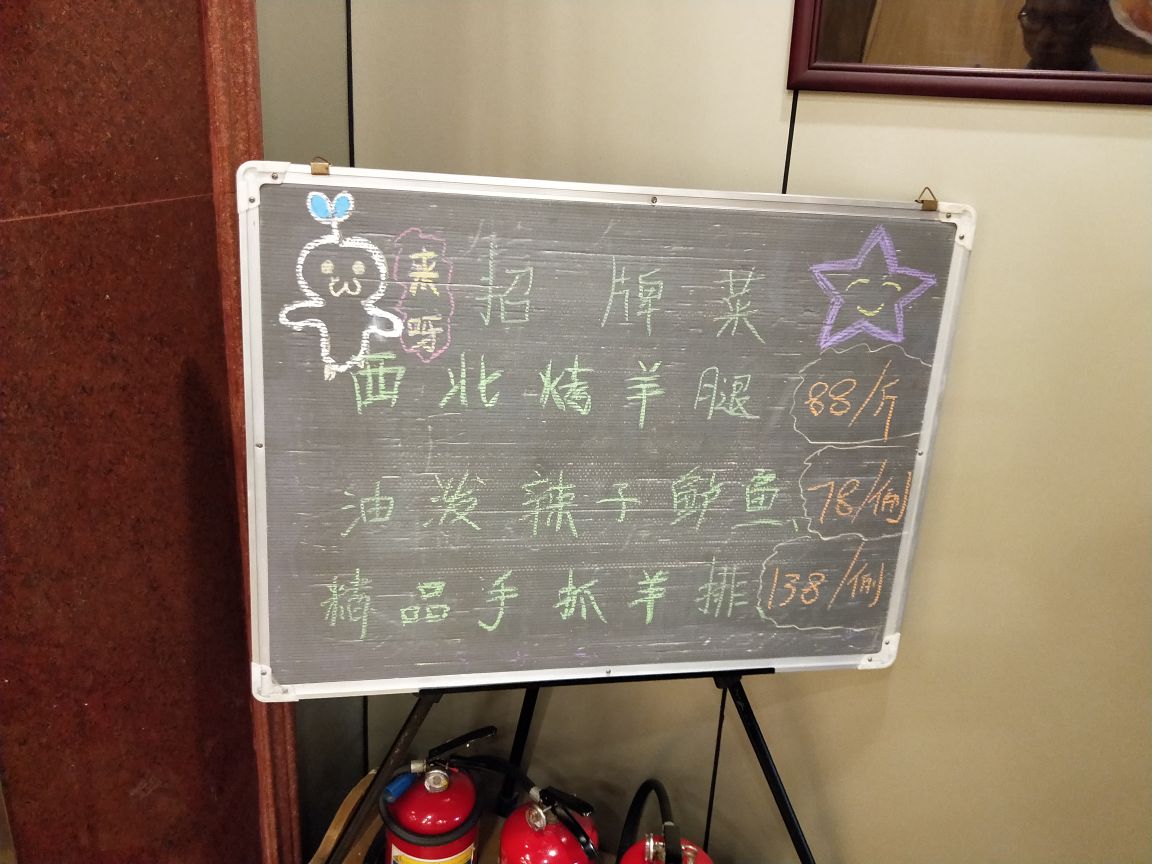 来呀
招牌菜
西北烤羊腿 88/斤
油泼辣子鲈鱼 78/例
精品手抓羊排 138/例